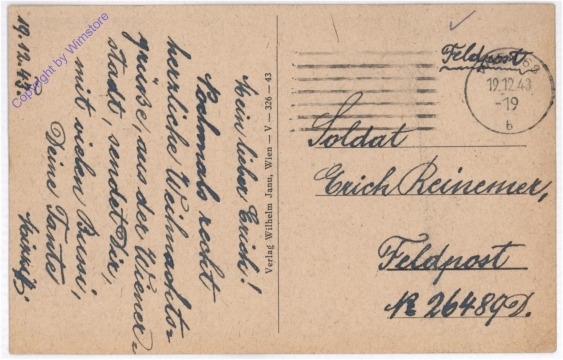 19.12.43.
Mein lieber Erich!
Nochmals recht
herrliche Weihnachts-
grüße, aus der Wiener-
stadt, sendet Dir,
mit vielen Bussi,
Deine Tante
Verlag Wilhelm Janu, Wien — V — 326 — 43
Feldpost
62
19.12.43
-19
b
Soldat
Erich Reinemer,
Feldpost
No 26489D.
Copyright by Winstore